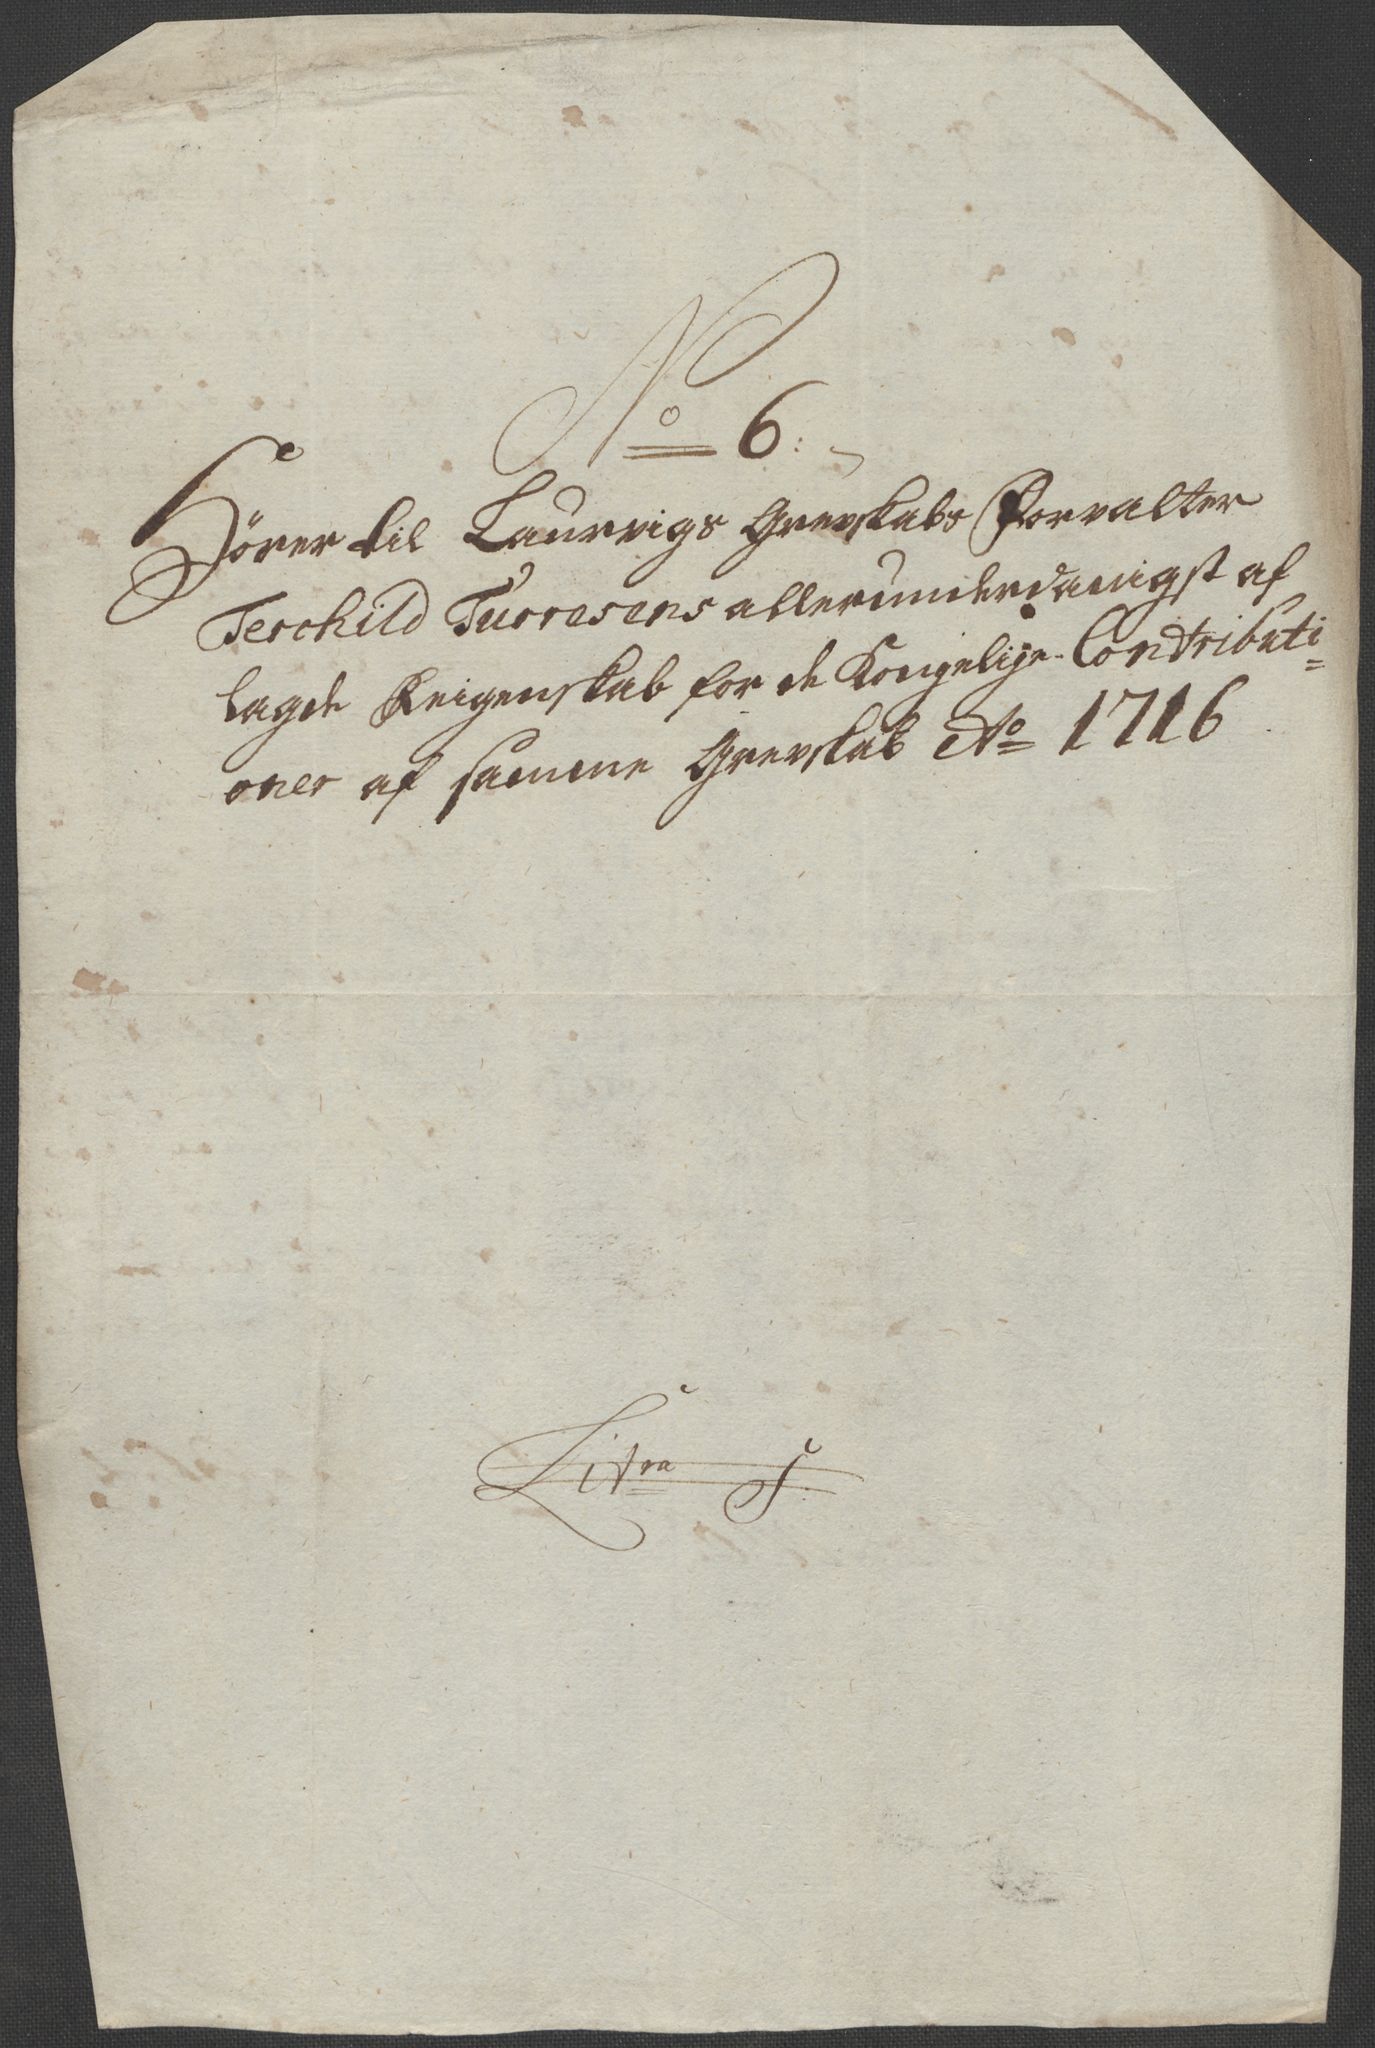 No 6:
Hörer til Laurvigs Grevskabs Forvalter
Terchild Tuoresens allerunderdanigst af
lagde Reigenskab for de Kongelige Contributi=
oner af samme Grevskab Ao 1716
Litra J